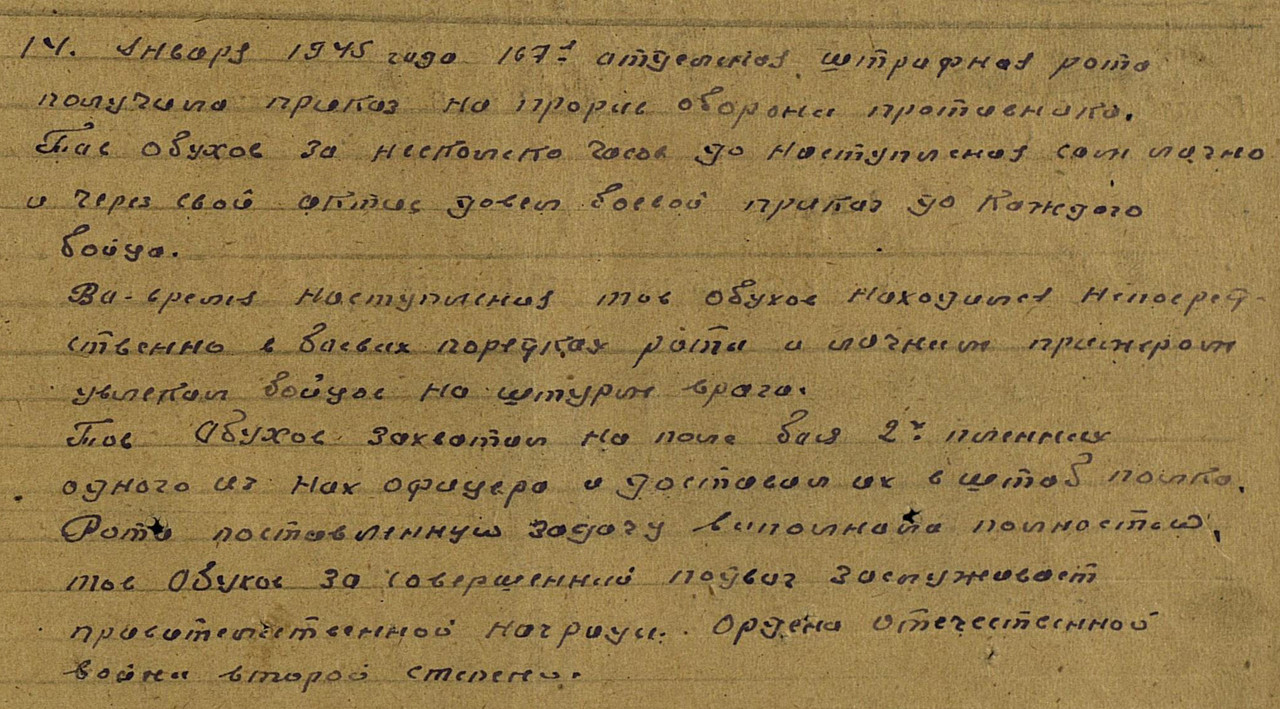 14. Января 1945 года 167я отдельная штрафная рота
получила приказ на прорыв обороны противника.
Тов Обухов за несколько часов до наступления сам лично
и через свой актив довел боевой приказ до каждого
бойца.
Во-время наступления тов Обухов находился непосред-
ственно в боевых порядках роты и личным примером
увлекал бойцов на штурм врага.
Тов Обухов захватил на поле боя 2х пленных
одного из них офицера и доставил их в штаб полка.
Рота поставленную задачу выполнила полностью,
тов Обухов за совершенный подвиг заслуживает
правительственной награды. Ордена Отечественной
войны второй степени.